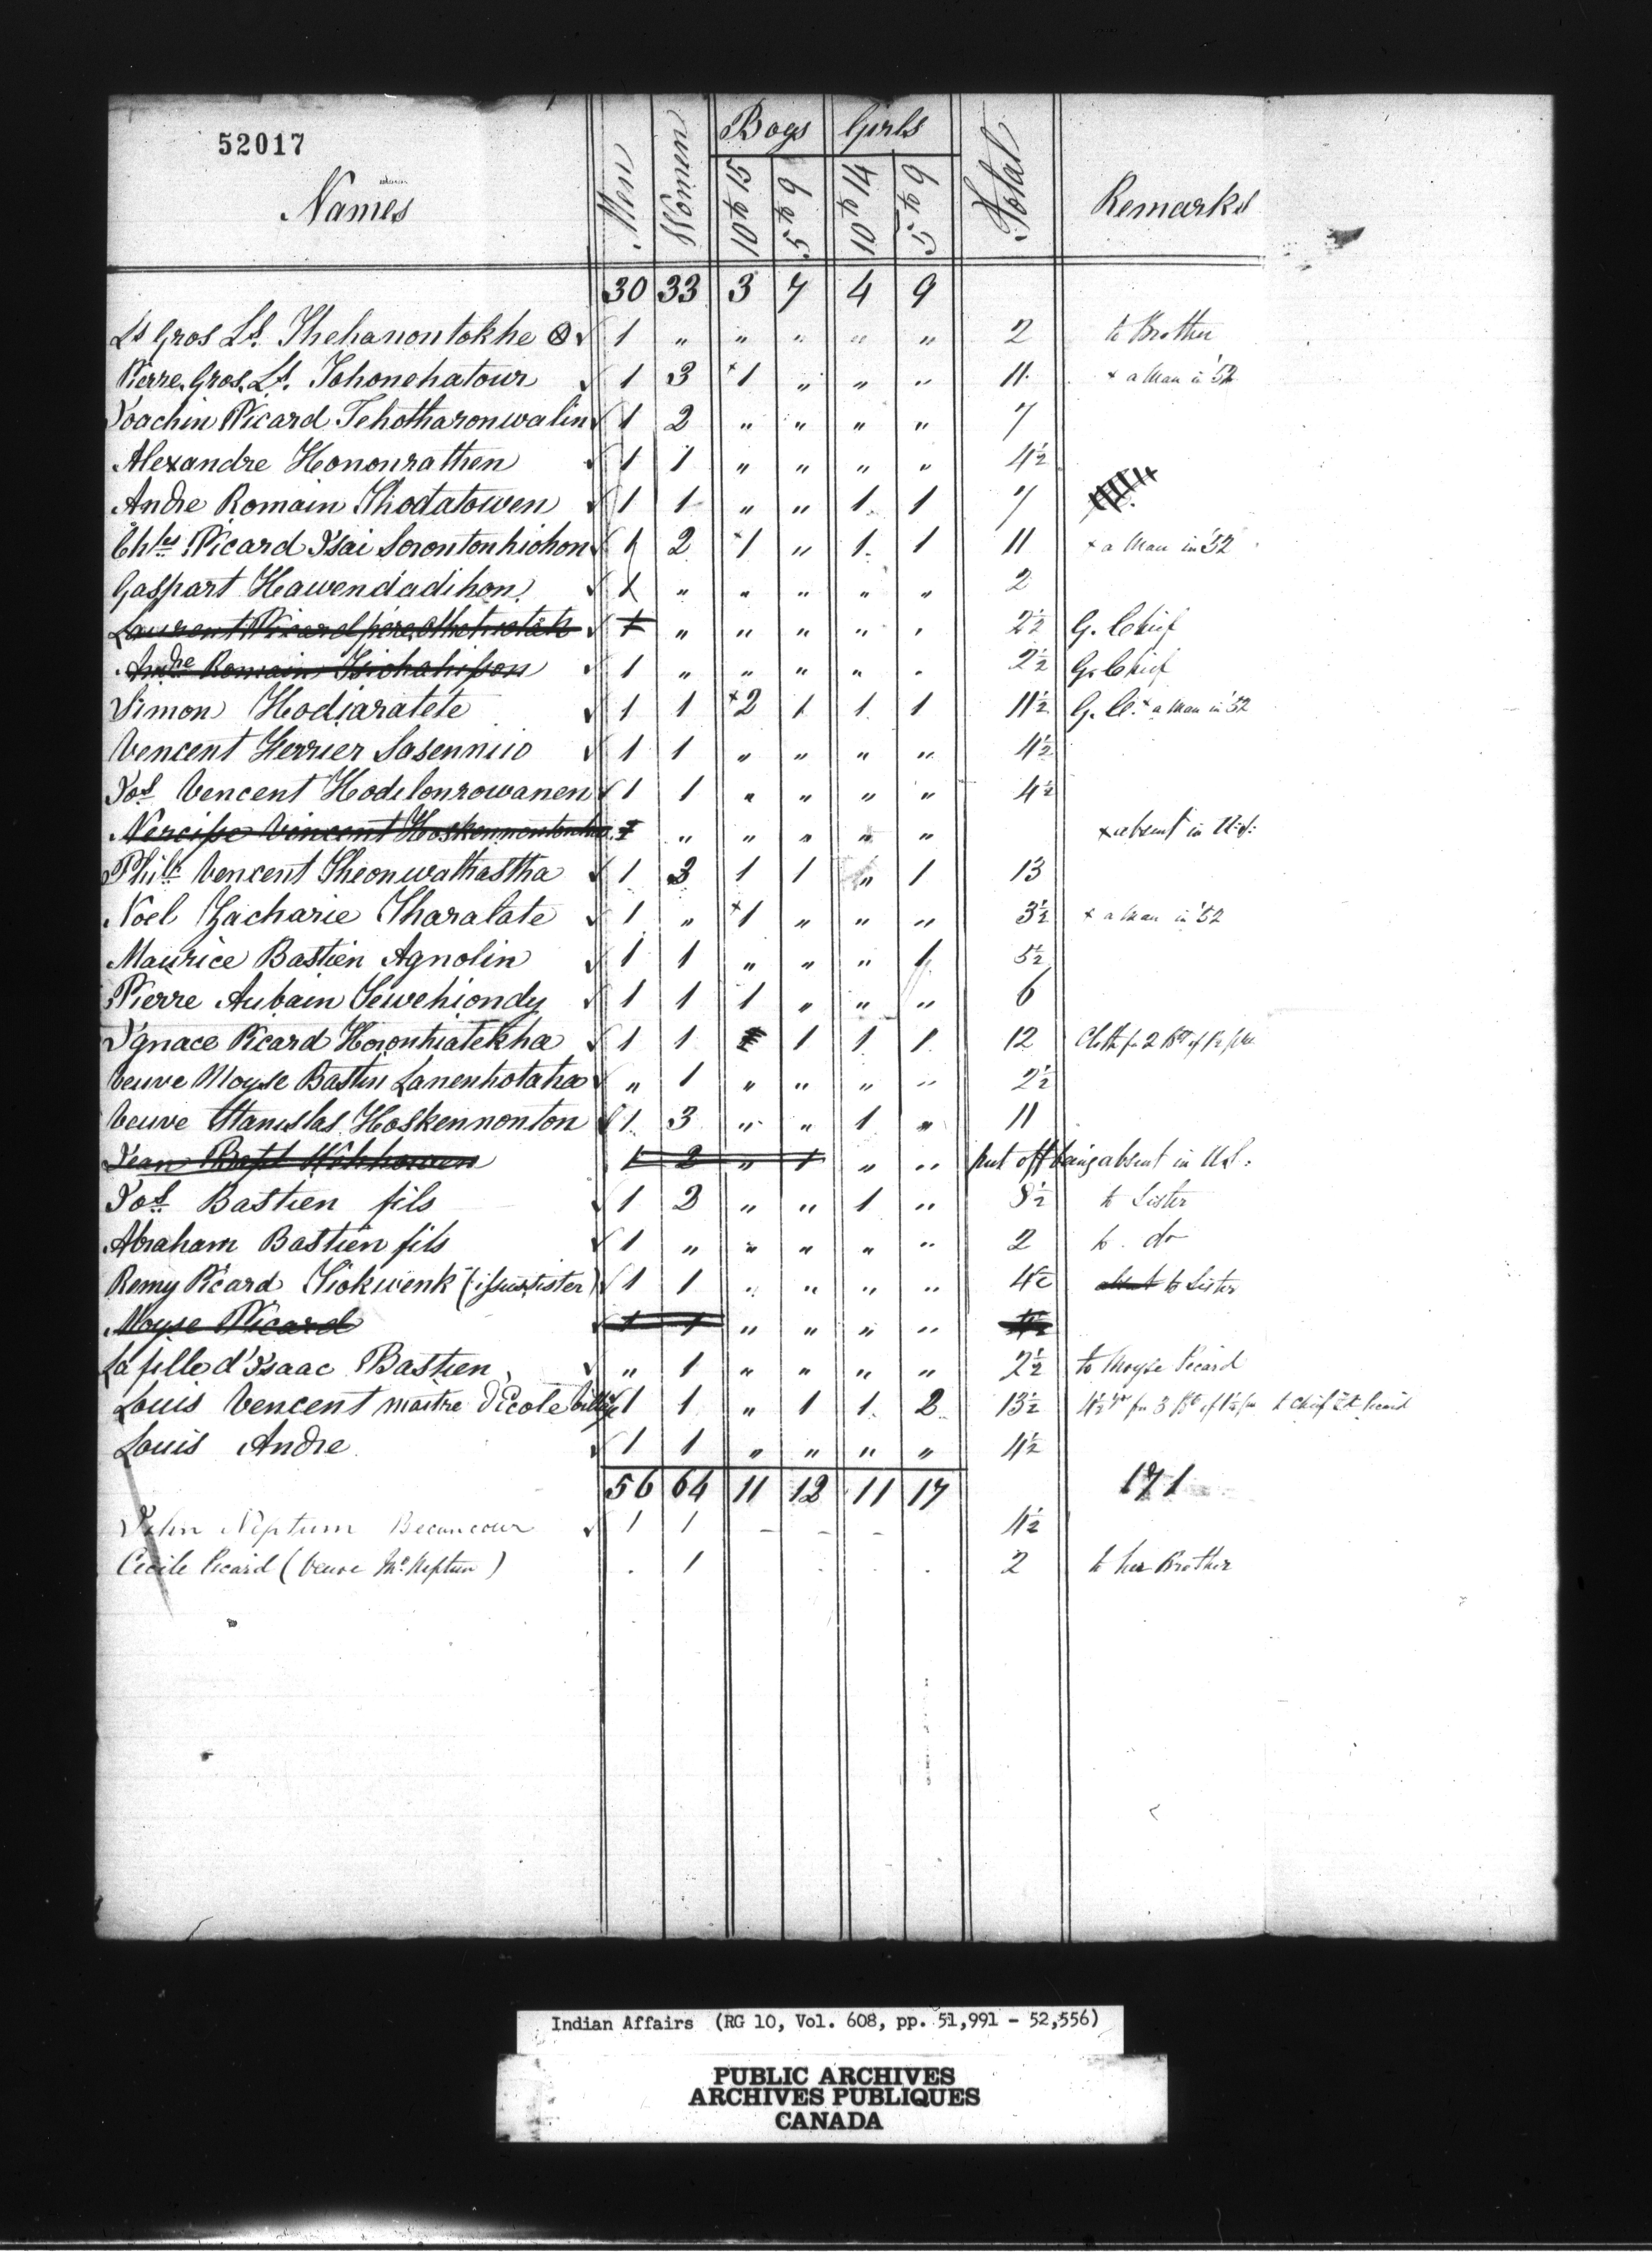 52017
Names Men Women Boys Girls Total Remarks
10 to 15 5 to 9 10 to 14 5 to 9
30 33 3 7 4 9
Ls Gros Ls. Thehanontokhe ⊗ √ 1 " " " " " 2 to Brother
Pierre Gros. Ls. Tohonehatour √ 1 3 x1 " " " 11 x a Man in '52
Joachin Picard Tehotharonwalin √ 1 2 " " " " 7
Alexandre Hononrathen √ 1 1 " " " " 4½
Andre Romain Thodatowen √ 1 1 " " 1 1 7
Chles Picard Isai Sorontonhiohon √ 1 2 x1 " 1 1 11 x a Man in '52
Gaspart Hawendadihon √ 1 " " " " " 2
Laurent Picard père √ 1 " " " " " 2½ G. Chief
Andre Romain Tsiohahisson √ 1 " " " " " 2½ G. Chief
Simon Hodiaratete √ 1 1 x2 1 1 1 11½ G. C. x a Man in '52
Vencent Herrier Sasennio √ 1 1 " " " " 4½
Jos Vencent Hodelonrowanen √ 1 1 " " " " 4½
Nercisse Vincent 1 " " " " " x absent in U.S.
Phile Vencent Theonwathastha √ 1 3 1 1 " 1 13
Noel Zacharie Tharalate √ 1 " x1 " " " 3½ x a Man in '52
Maurice Bastien Agnolin √ 1 1 " " " 1 5½
Pierre Aubain Sewehiondy √ 1 1 1 " " " 6
Ignace Picard Horonhiatekha √ 1 1 1 1 1 1 12 Cloth for 2
Veuve Moyse Bastin Lanenhotaha √ " 1 " " " " 2½
Veuve Stanislas Hoskennonton √ 1 3 " " 1 " 11
Jean Bapt 1 2 " 1 " " put off being absent in U.S.
Jos Bastien fils √ 1 2 " " 1 " 8½ to Sister
Abraham Bastien fils √ 1 " " " " " 2 to do
Remy Picard Tiokwenk ( sister) √ 1 1 " " " " 4½ to Sister
Moyse Picard √ 1 1 " " " " 4½
La fille d'Isaac Bastien √ " 1 " " " " 2½ to Moyse Picard
Louis Vencent maitre d'Ecole √ 1 1 " 1 1 2 13½ 4½ for 3 to Chief
Louis Andre √ 1 1 " " " " 4½
56 64 11 12 11 17 171
John Neptum Becancour √ 1 1 - - - 4½
Cecile Picard (Veuve Neptun) . 1 . . . . 2 to her Brother
Indian Affairs (RG 10, Vol. 608, pp. 51,991 - 52,556)
PUBLIC ARCHIVES
ARCHIVES PUBLIQUES
CANADA